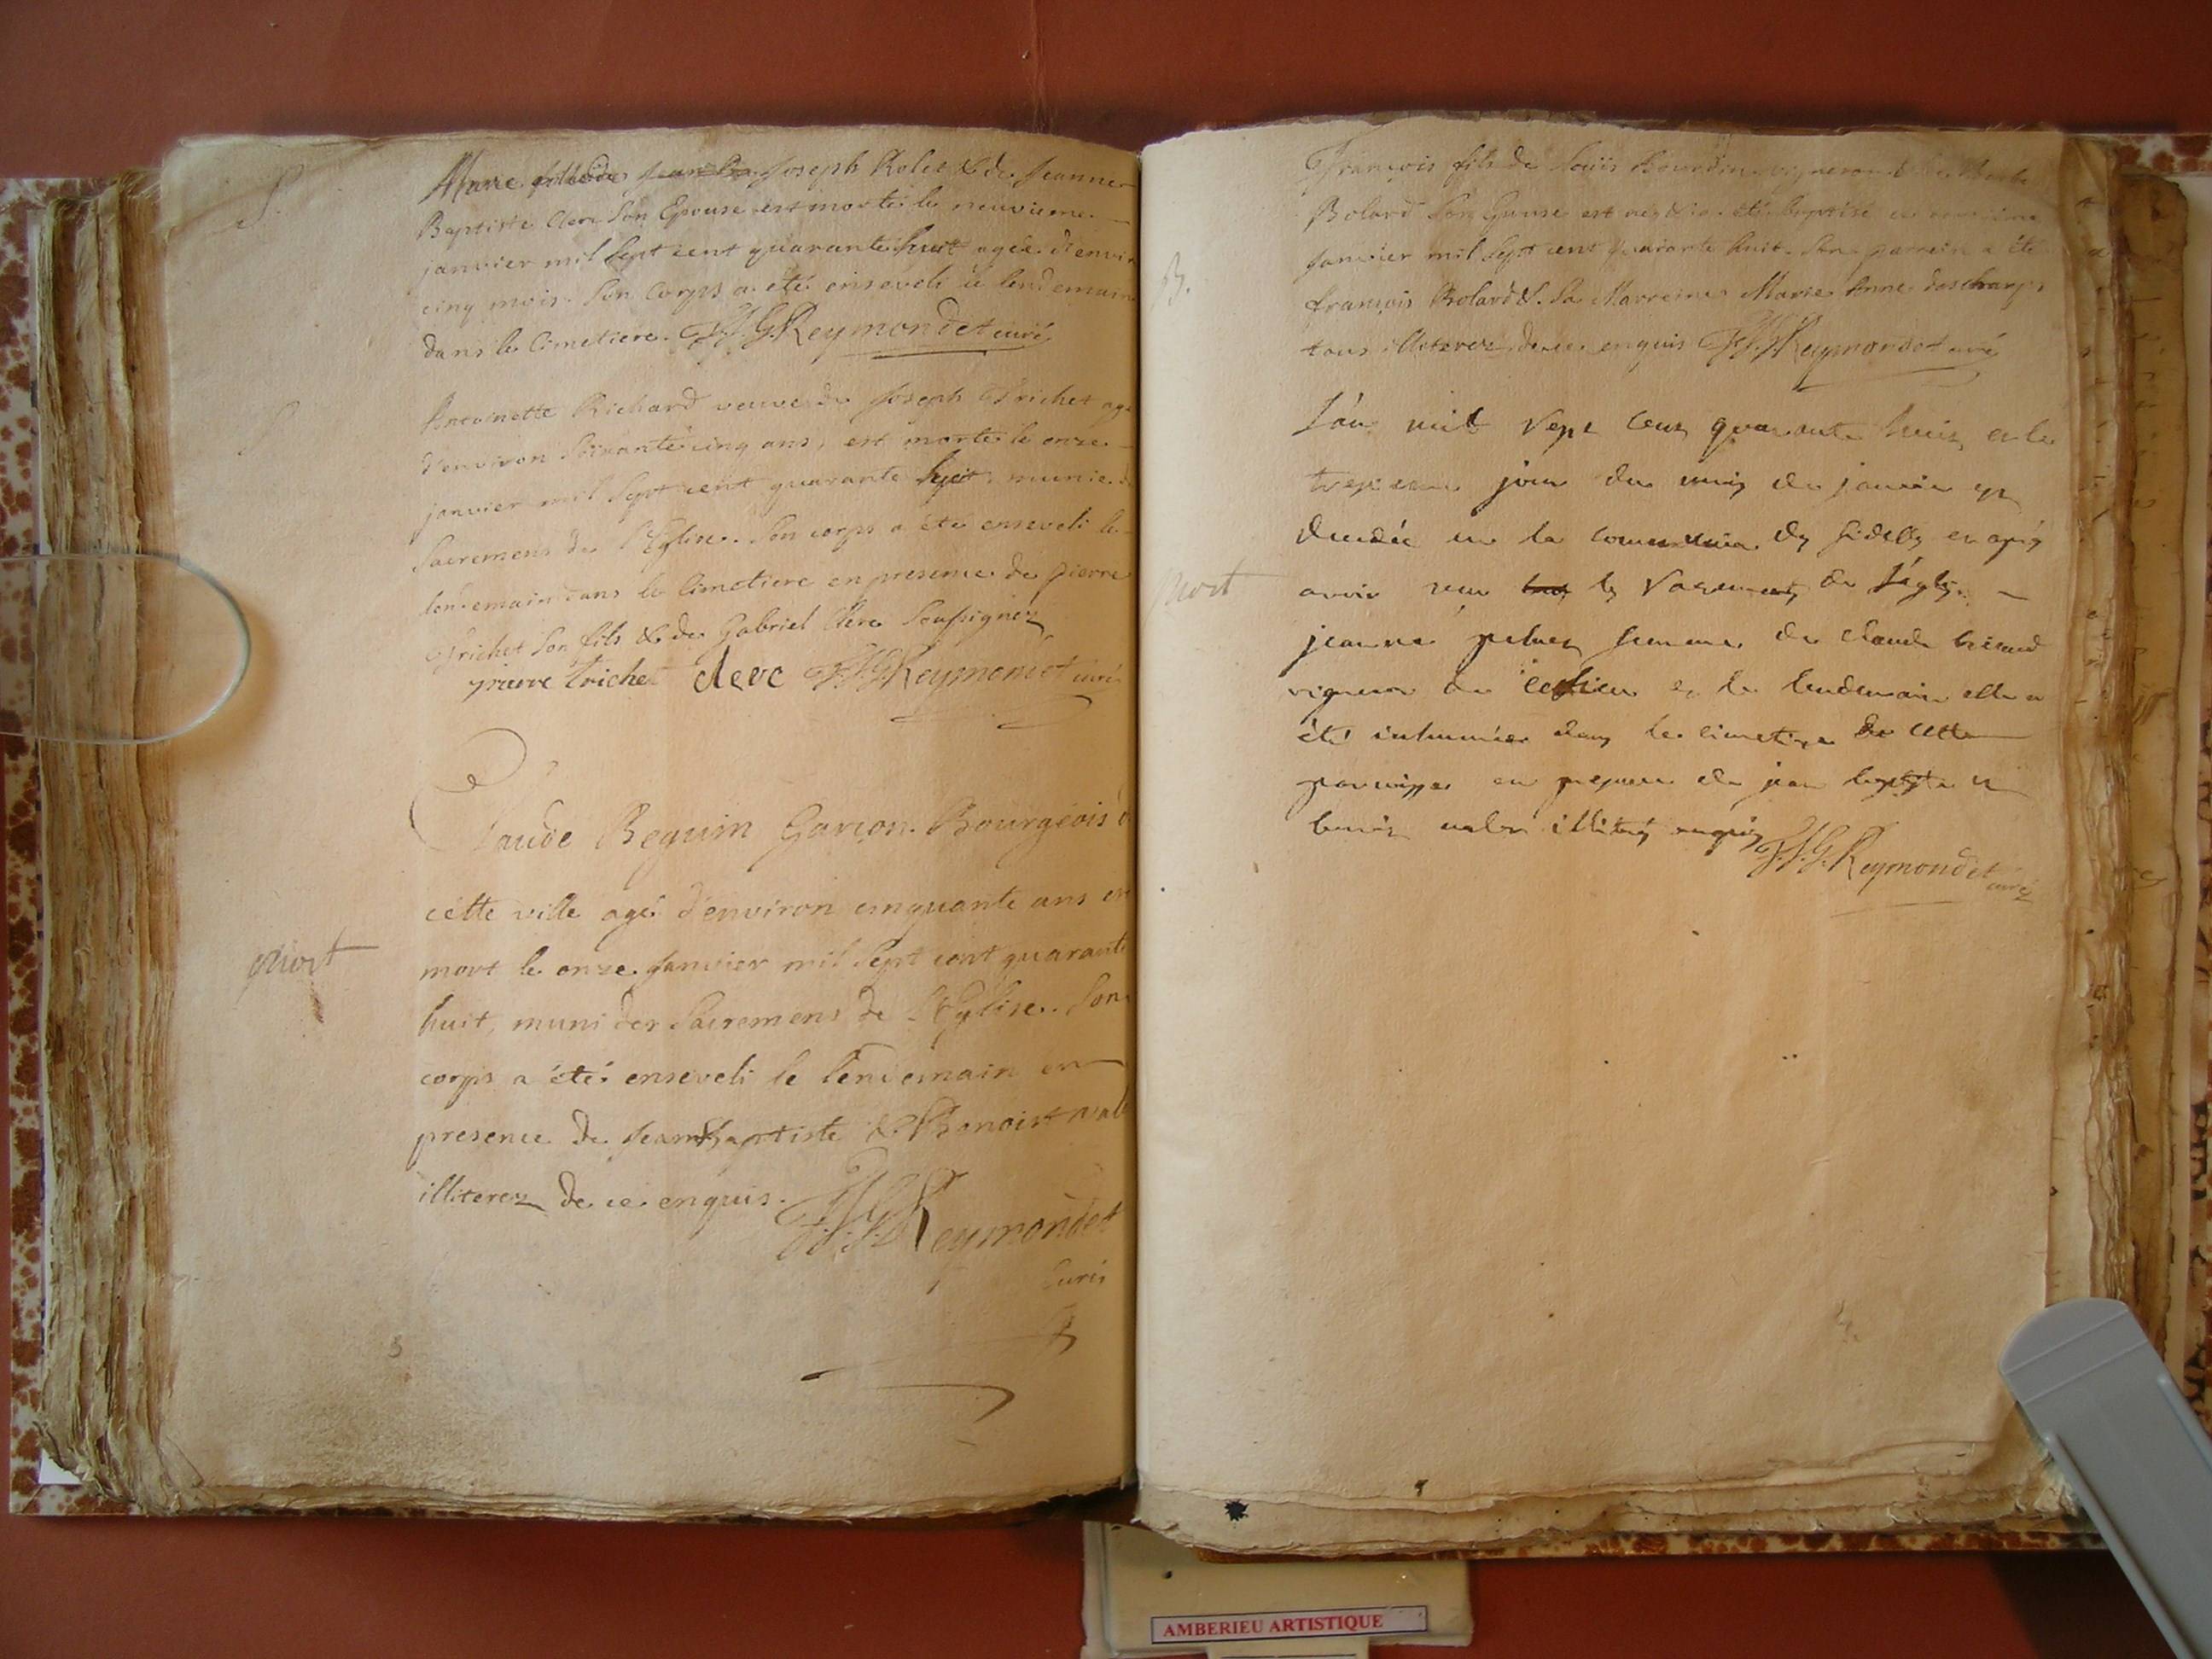 S.
Marie fille de Joseph Rolet & de Jeanne
Baptiste Clerc Son Epouse est morte le neuvieme
janvier mil Sept cent quarante huit agée d'envir
cinq mois. Son Corps a été enseveli le lendemain
dans le Cimetiere. J.J.G. Reymondet curé
S
Antoinette Richard veuve de Joseph Trichet agé
d'environ Soixante cinq ans, est morte le onze
janvier mil Sept cent quarante huit, munie d
Sacremens de l'Eglise. Son corps a été enseveli le
lendemain dans le Cimetiere en presence de pierre
Trichet Son fils & de Gabriel Clerc Soussignez
pierre trichet clerc J.J.G. Reymondet curé
Claude Beguin Garçon Bourgeois d
cette ville agé d'environ cinquante ans est
mort
mort le onze Janvier mil Sept cent quarante
huit, muni des Sacremens de l'Eglise. Son
corps a été enseveli le lendemain en
presence de Jean Baptiste & Benoist
illiterez de ce enquis.
J.J.G. Reymondet
Curé
François fils de Louis vigneron & de
Bolard Son Epouse est né & a été baptisé
B.
Janvier mil Sept cent quarante huit. Son parrein a été
françois Bolard & Sa Marreine Marie Anne deschamps
tous illiterez de ce enquis J.J.G. Reymondet curé
L'an mil Sept cent quarante huit et le
jour du mois de janvier est
décédée en la communion des fideles et après
mort
avoir reçu les Sacrements de l'église
jeanne femme de claude
vigneron de ce lieu et le lendemain elle a
été inhumée dans le cimetiere de cette
parroisse en presence de jean baptiste et
benoit illiterés enquis
J.J.G. Reymondet curé
AMBERIEU ARTISTIQUE